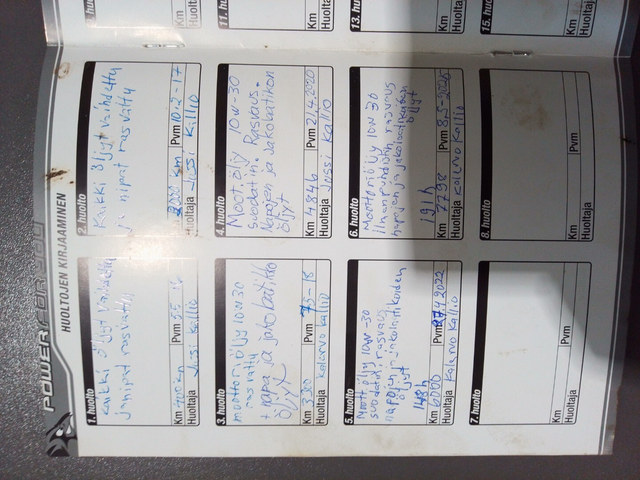 POWER FOR YOU
HUOLTOJEN KIRJAAMINEN
1. huolto
Kaikki öljyt vaihdettu
ja nipat rasvattu
Km
Pvm
Huoltaja Jussi Kallio
2. huolto
Kaikki öljyt vaihdettu
ja nipat rasvattu
Km 2000 km Pvm 10-2-17
Huoltaja Jussi Kallio
3. huolto
moottoriöljy 10w30
rasvattu
+ napa ja jakolaatikko
öljyt
Km Pvm
Huoltaja Kalervo Kallio
4. huolto
Moot.öljy 10w-30
Suodatin. Rasvaus.
Napojen ja Jakolaatikon
öljyt
Km 4846 Pvm 21.4.2020
Huoltaja Jussi Kallio
5. huolto
Moott öljy 10W-30
suodatin, rasvaus
napojen, Jakolaatikoiden
öljyt
148h
Km 6000 Pvm 4 2022
Huoltaja Kalervo Kallio
6. huolto
Moottoriöljy 10W 30
Ilmanpuhdistin, rasvaus
napojen ja jakolaatikoiden
öljyt
191h
Km 7798 Pvm
Huoltaja Kalervo Kallio
7. huolto
Km Pvm
Huoltaja
8. huolto
Km Pvm
Huoltaja
11. hu
Km
Huolta
13. hu
Km
Huolta
15. hu
Km
Huolta